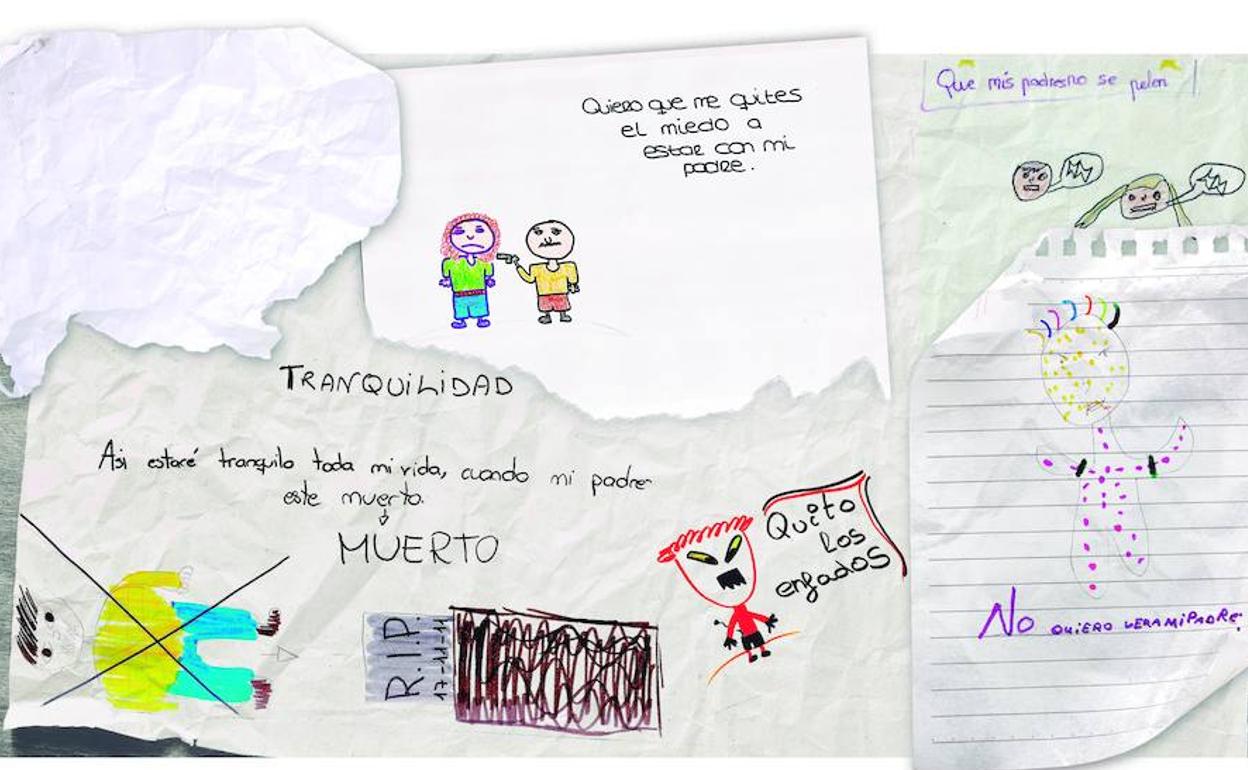 Quiero que me quites
el miedo a
estar con mi
padre.
Que mis padres no se pelen
TRANQUILIDAD
Asi estaré tranquilo toda mi vida, cuando mi padre
este muerto.
MUERTO
R.I.P.
17-11-11
Quito
los
enfados
No QUIERO VER A MI PADRE.